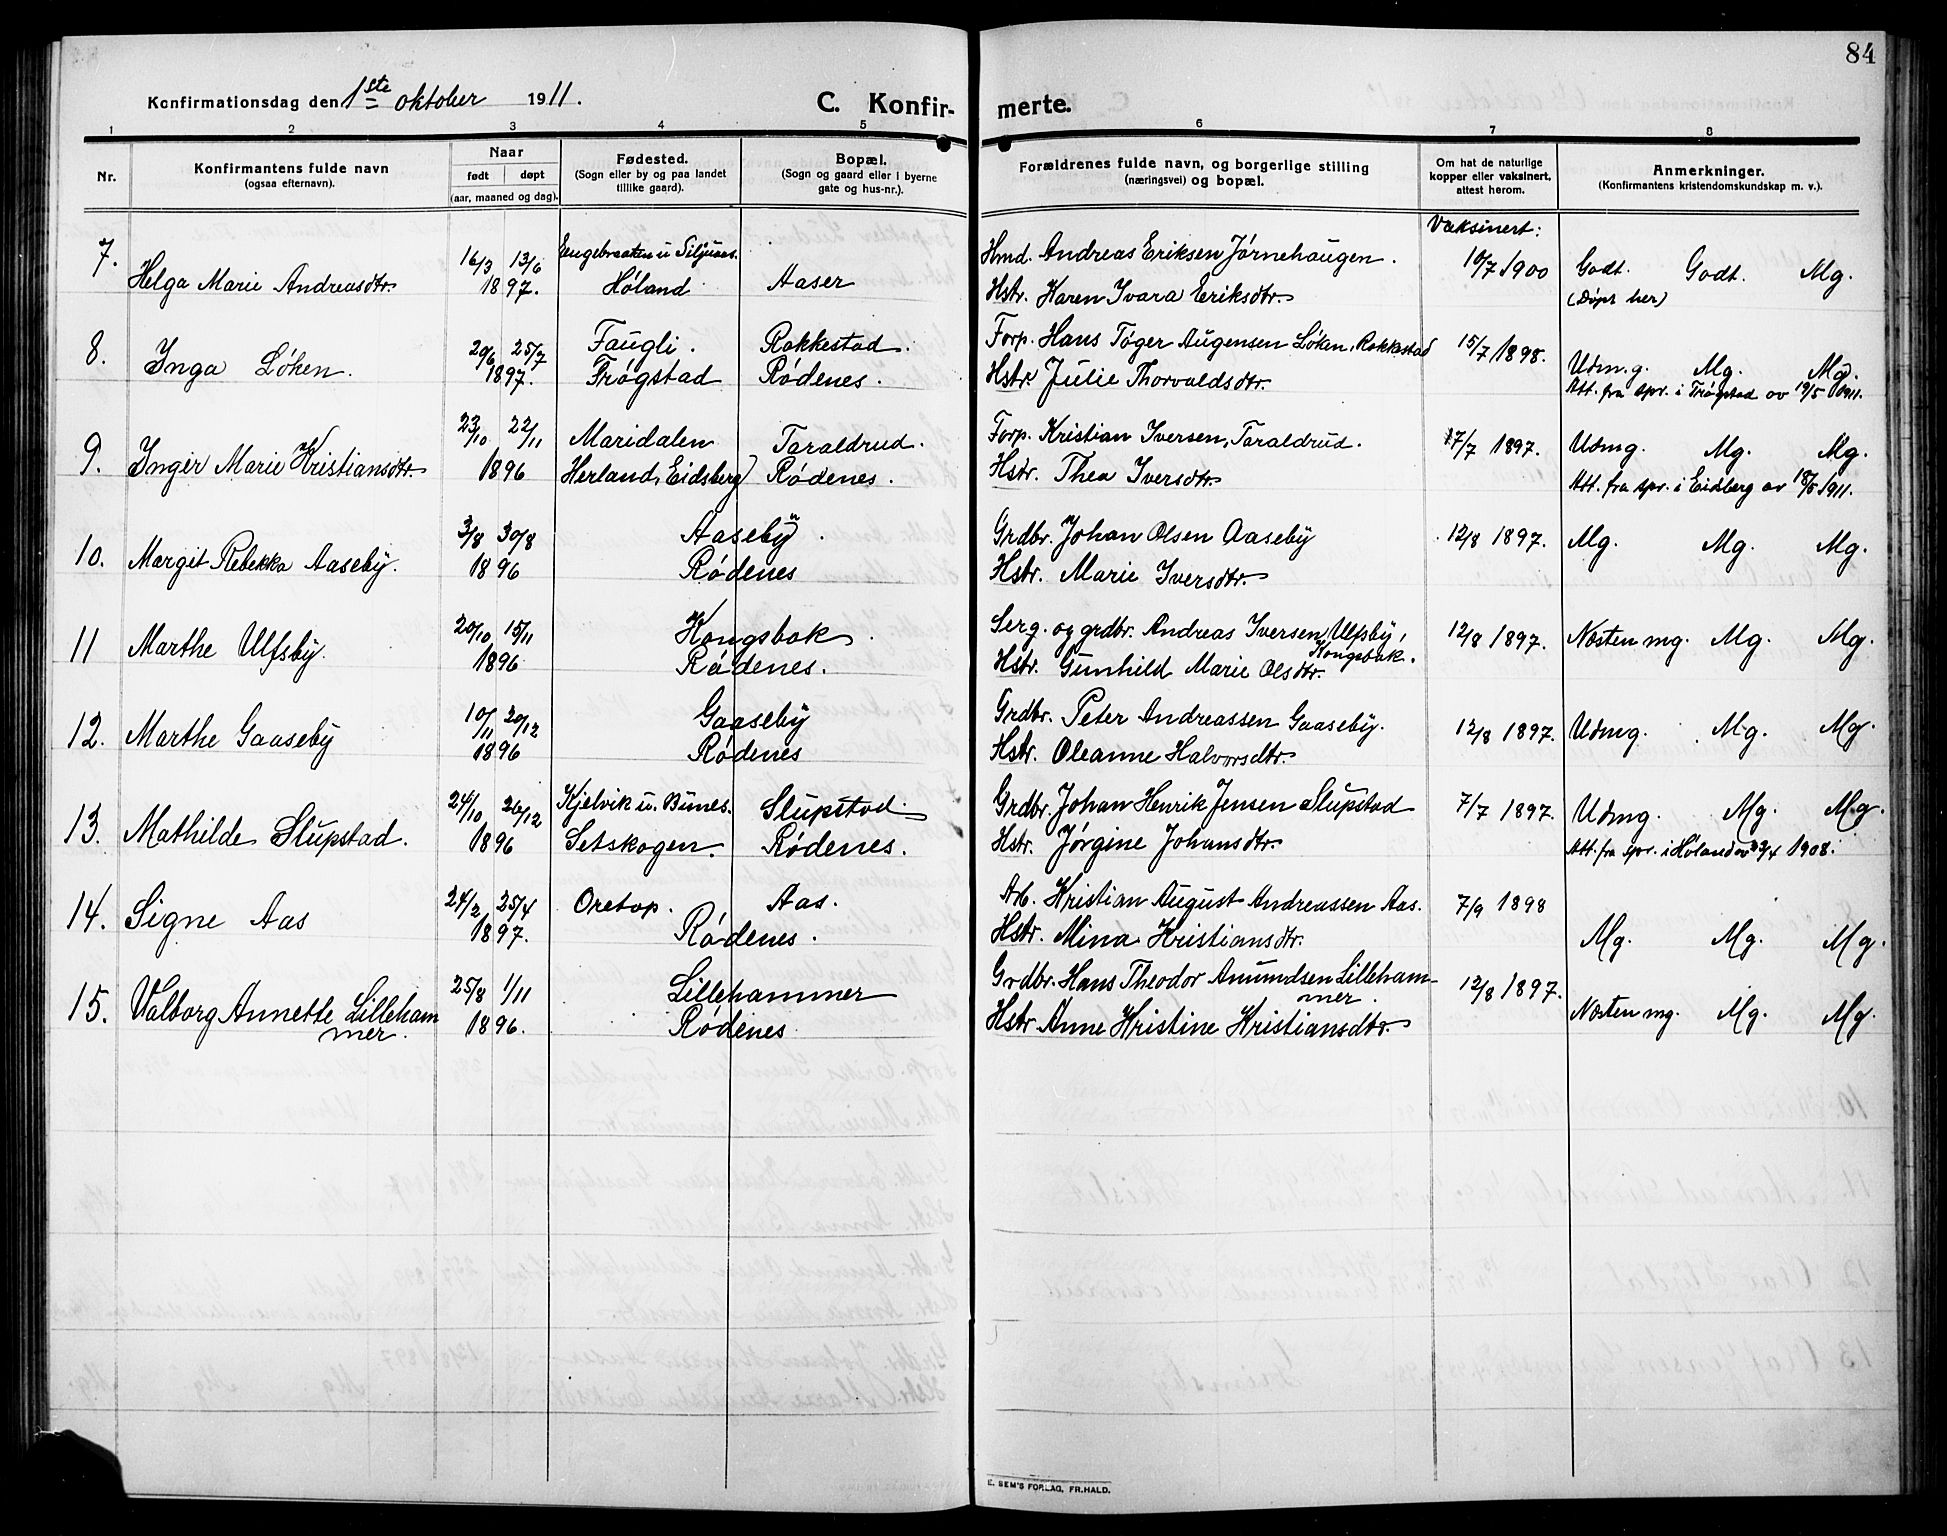 84
Konfirmationsdag den 1ste oktober 1911.
C. Konfir- merte.
1 2 3 4 5 6 7 8
Nr.
Konfirmantens fulde navn
(ogsaa efternavn).
Naar
født døpt
(aar, maaned og dag).
Fødested.
(Sogn eller by og paa landet
tillike gaard).
Bopæl.
(Sogn og gaard eller i byerne
gate og hus-nr.).
Forældrenes fulde navn, og borgerlige stilling
(næringsvei) og bopæl.
Om hat de naturlige
kopper eller vaksinert,
attest herom.
Anmerkninger.
(Konfirmantens kristendomskundskap m. v.).
Vaksinert:
7. Helga Marie Andreasdtr. 16/3 13/6 1897. Engebraaten u Siljunes. Høland Aaser
Hmd. Andreas Eriksen Jørnehaugen. 10/7 1900 Godt. Godt. Mg.
Hstr. Karen Ivara Eriksdtr. (Døpt her)
8. Inga Løken. 20/6 25/7 1897. Faugli. Trøgstad Rakkestad. Rødenes.
Forp. Hans Tøger Augensen Løken, Rakkestad 15/7 1898. Udm.g. Mg. Mg.
Hstr. Julie Thorvaldsdtr. Att. fra spr. i Trøgstad av 19/5 1911.
9. Inger Marie Kristiansdtr. 23/10 22/11 1896 Maridalen Herland, Eidsberg Taraldrud. Rødenes.
Forp. Kristian Iversen, Taraldrud. 17/7 1897. Udmg. Mg. Mg.
Hstr. Thea Iversdtr. Att. fra spr. i Eidsberg av 18/5 1911.
10. Margit Rebekka Aaseby. 3/8 30/8 1896 Aaseby. Rødenes
Grdbr. Johan Olsen Aaseby 12/8 1897. Mg. Mg. Mg.
Hstr. Marie Iversdtr.
11 Marthe Ulfsby. 20/10 15/11 1896 Kongsbak. Rødenes.
Serg. og grdbr. Andreas Iversen Ulfsby, Kongsbak. 12/8 1897. Næsten mg. Mg. Mg.
Hstr. Gunhild Marie Olsdtr.
12. Marthe Gaaseby 10/11 20/12 1896 Gaaseby Rødenes
Grdbr. Peter Andreassen Gaaseby. 12/8 1897. Udmg. Mg. Mg.
Hstr. Oleanne Halvorsdtr.
13. Mathilde Slupstad. 24/10 26/12 1896 Kjelvik u. Bunes. Setskogen. Slupstad. Rødenes.
Grdbr. Johan Henrik Jensen Slupstad 7/7 1897. Udmg. Mg. Mg.
Hstr. Jørgine Johansdtr. Att. fra spr. i Høland av 23/4 1908.
14. Signe Aas 24/2 25/4 1897. Oretop. Aas. Rødenes.
Arb. Kristian August Andreassen Aas. 7/9 1898
Hstr. Mina Kristiansdtr. Mg. Mg. Mg.
15. Valborg Annette Lilleham mer. 25/8 1/11 1896. Lillehammer Rødenes
Grdbr. Hans Theodor Amundsen Lilleham- mer. 12/8 1897. Næsten mg. Mg. Mg.
Hstr. Anne Kristine Kristiansdtr.
E. SEM'S FORLAG, FR.HALD.